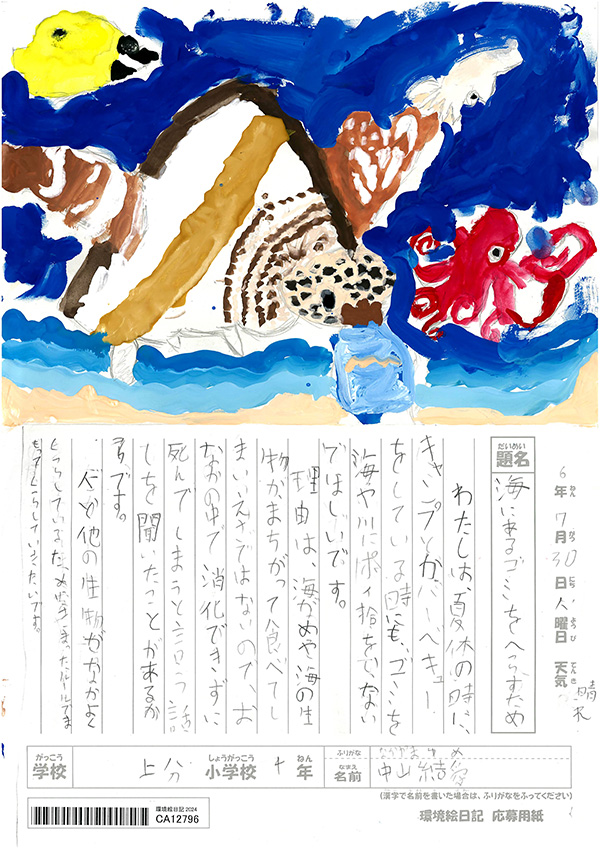 6年 7月 30日 火曜日 天気 晴れ
ねん がつ にち ようび てんき
だいめい
題名
海にあるゴミをへらすため
わたしは、夏休の時に、
キャンプとかバーベキュー
をしている時にも、ゴミを
海や川にポイ捨をしない
でほしいです。
理由は、海がめや海の生
物がまちがって食べてし
まいいえさではないので、お
なかの中で消化できずに
死んでしまうと言う話
しを聞いたことがあるか
らです。
人と他の生物がなかよく
くらしていくため
がっこう
学校
上分
しょうがっこう
小学校
4
ねん
年
ふりがな
なかやま ゆめ
なまえ
名前
中山 結愛
(漢字で名前を書いた場合は、ふりがなをふってください)
環境絵日記2024
CA12796
環境絵日記 応募用紙